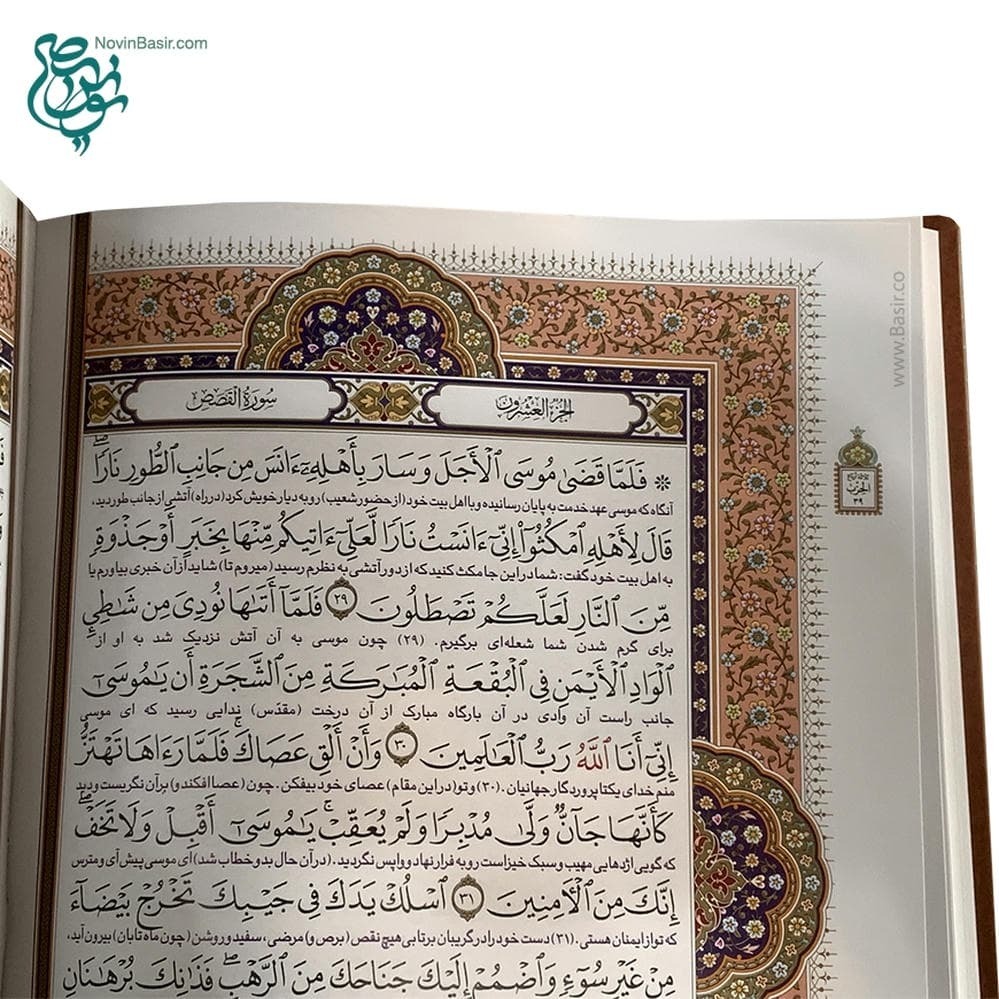 NovinBasir.com
www.Basir.co
سُورَةُ الْقَصَصِ
الجُزءُ العِشرُون
الحِزب
٣٩
* فَلَمَّا قَضَىٰ مُوسَى ٱلْأَجَلَ وَسَارَ بِأَهْلِهِۦٓ ءَانَسَ مِن جَانِبِ ٱلطُّورِ نَارًاۖ
آنگاه که موسی عهد خدمت به پایان رسانیده و با اهل بیت خود (از حضور شعیب) رو به دیار خویش کرد (در راه) آتشی از جانب طور دید،
قَالَ لِأَهْلِهِ ٱمْكُثُوٓا۟ إِنِّىٓ ءَانَسْتُ نَارًا لَّعَلِّىٓ ءَاتِيكُم مِّنْهَا بِخَبَرٍ أَوْ جَذْوَةٍ
به اهل بیت خود گفت: شما در این جا مکث کنید که از دور آتشی به نظرم رسید (میروم تا) شاید از آن خبری بیاورم یا
مِّنَ ٱلنَّارِ لَعَلَّكُمْ تَصْطَلُونَ ٢٩ فَلَمَّآ أَتَىٰهَا نُودِىَ مِن شَٰطِئِ
برای گرم شدن شما شعله‌ای برگیرم. (٢٩) چون موسی به آن آتش نزدیک شد به او از
ٱلْوَادِ ٱلْأَيْمَنِ فِى ٱلْبُقْعَةِ ٱلْمُبَٰرَكَةِ مِنَ ٱلشَّجَرَةِ أَن يَٰمُوسَىٰٓ
جانب راست آن وادی در آن بارگاه مبارک از آن درخت (مقدّس) ندایی رسید که ای موسی
إِنِّىٓ أَنَا ٱللَّهُ رَبُّ ٱلْعَٰلَمِينَ ٣٠ وَأَنْ أَلْقِ عَصَاكَۖ فَلَمَّا رَءَاهَا تَهْتَزُّ
منم خدای یکتا پروردگار جهانیان. (٣٠) و تو (در این مقام) عصای خود بیفکن. چون (عصا افکند و) بر آن نگریست و دید
كَأَنَّهَا جَآنٌّ وَلَّىٰ مُدْبِرًا وَلَمْ يُعَقِّبْۚ يَٰمُوسَىٰٓ أَقْبِلْ وَلَا تَخَفْۖ
که گویی اژدهایی مهیب و سبک خیز است رو به فرار نهاد و واپس نگردید. (در آن حال بدو خطاب شد) ای موسی پیش آی و مترس
إِنَّكَ مِنَ ٱلْءَامِنِينَ ٣١ ٱسْلُكْ يَدَكَ فِى جَيْبِكَ تَخْرُجْ بَيْضَآءَ
که تو از ایمنان هستی. (٣١) دست خود را در گریبان بر تا بی هیچ نقص (برص و) مرضی، سفید و روشن (چون ماه تابان) بیرون آید،
مِنْ غَيْرِ سُوٓءٍ وَٱضْمُمْ إِلَيْكَ جَنَاحَكَ مِنَ ٱلرَّهْبِۖ فَذَٰنِكَ بُرْهَٰنَانِ